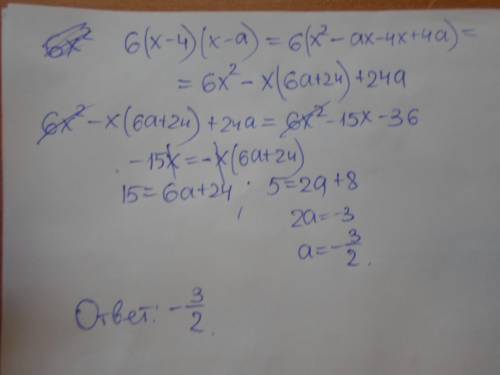 6x² 6(x-4)(x-a) = 6(x² - ax - 4x + 4a) =
= 6x² - x(6a+24) + 24a
6x² - x(6a+24) + 24a = 6x² - 15x - 36
-15x = -x(6a+24)
15 = 6a+24 5 = 2a+8
2a = -3
a = -3/2.
Ответ: -3/2.